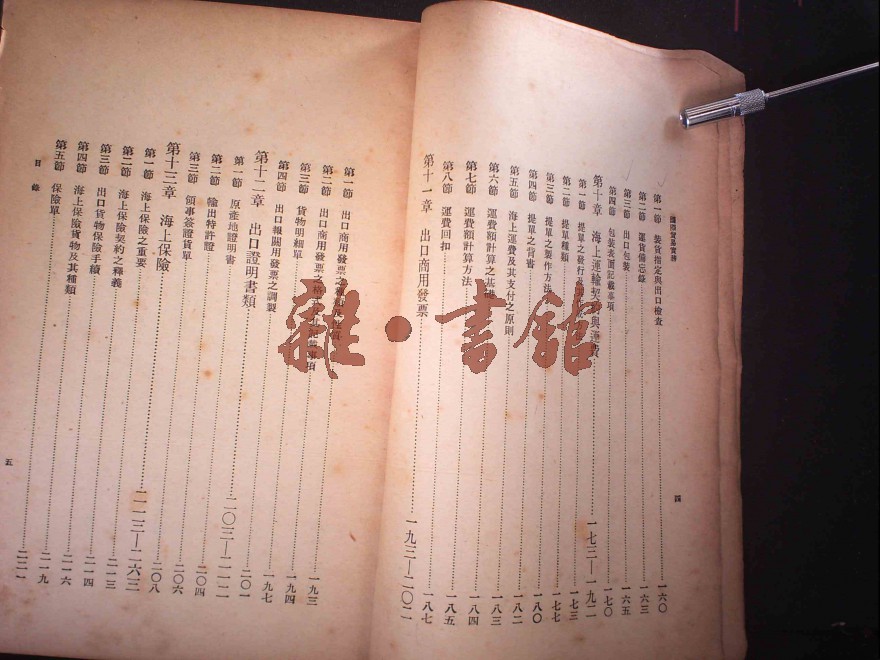 國際貿易實務
第一節 裝貨指定與出口檢查 一六〇
第二節 運貨備忘錄 一六三
第三節 出口包裝 一六五
第四節 包裝表面記載事項 一七〇
第十章 海上運輸契約與運費 一七三—一九二
第一節 提單之發行及 一七三
第二節 提單種類 一七七
第三節 提單之製作方法 一八〇
第四節 提單之背書 一八二
第五節 海上運費及其支付之原則 一八三
第六節 運費額計算之基礎 一八四
第七節 運費額計算方法 一八五
第八節 運費回扣 一八七
第十一章 出口商用發票 一九三—二〇二
四
第一節 出口商用發票之 一九三
第二節 出口商用發票之格式及其記載事項 一九四
第三節 貨物明細單 一九七
第四節 出口報關用發票之調製 二〇一
第十二章 出口證明書類 二〇三—二一二
第一節 原產地證明書 二〇四
第二節 輸出特許證 二〇六
第三節 領事簽證貨單 二〇八
第十三章 海上保險 二一三—二六三
第一節 海上保險之重要 二一三
第二節 海上保險契約之釋義 二一四
第三節 出口貨物保險手續 二一六
第四節 海上保險貨物及其種類 二一九
第五節 保險單 二二一
目錄
五
雜·書館